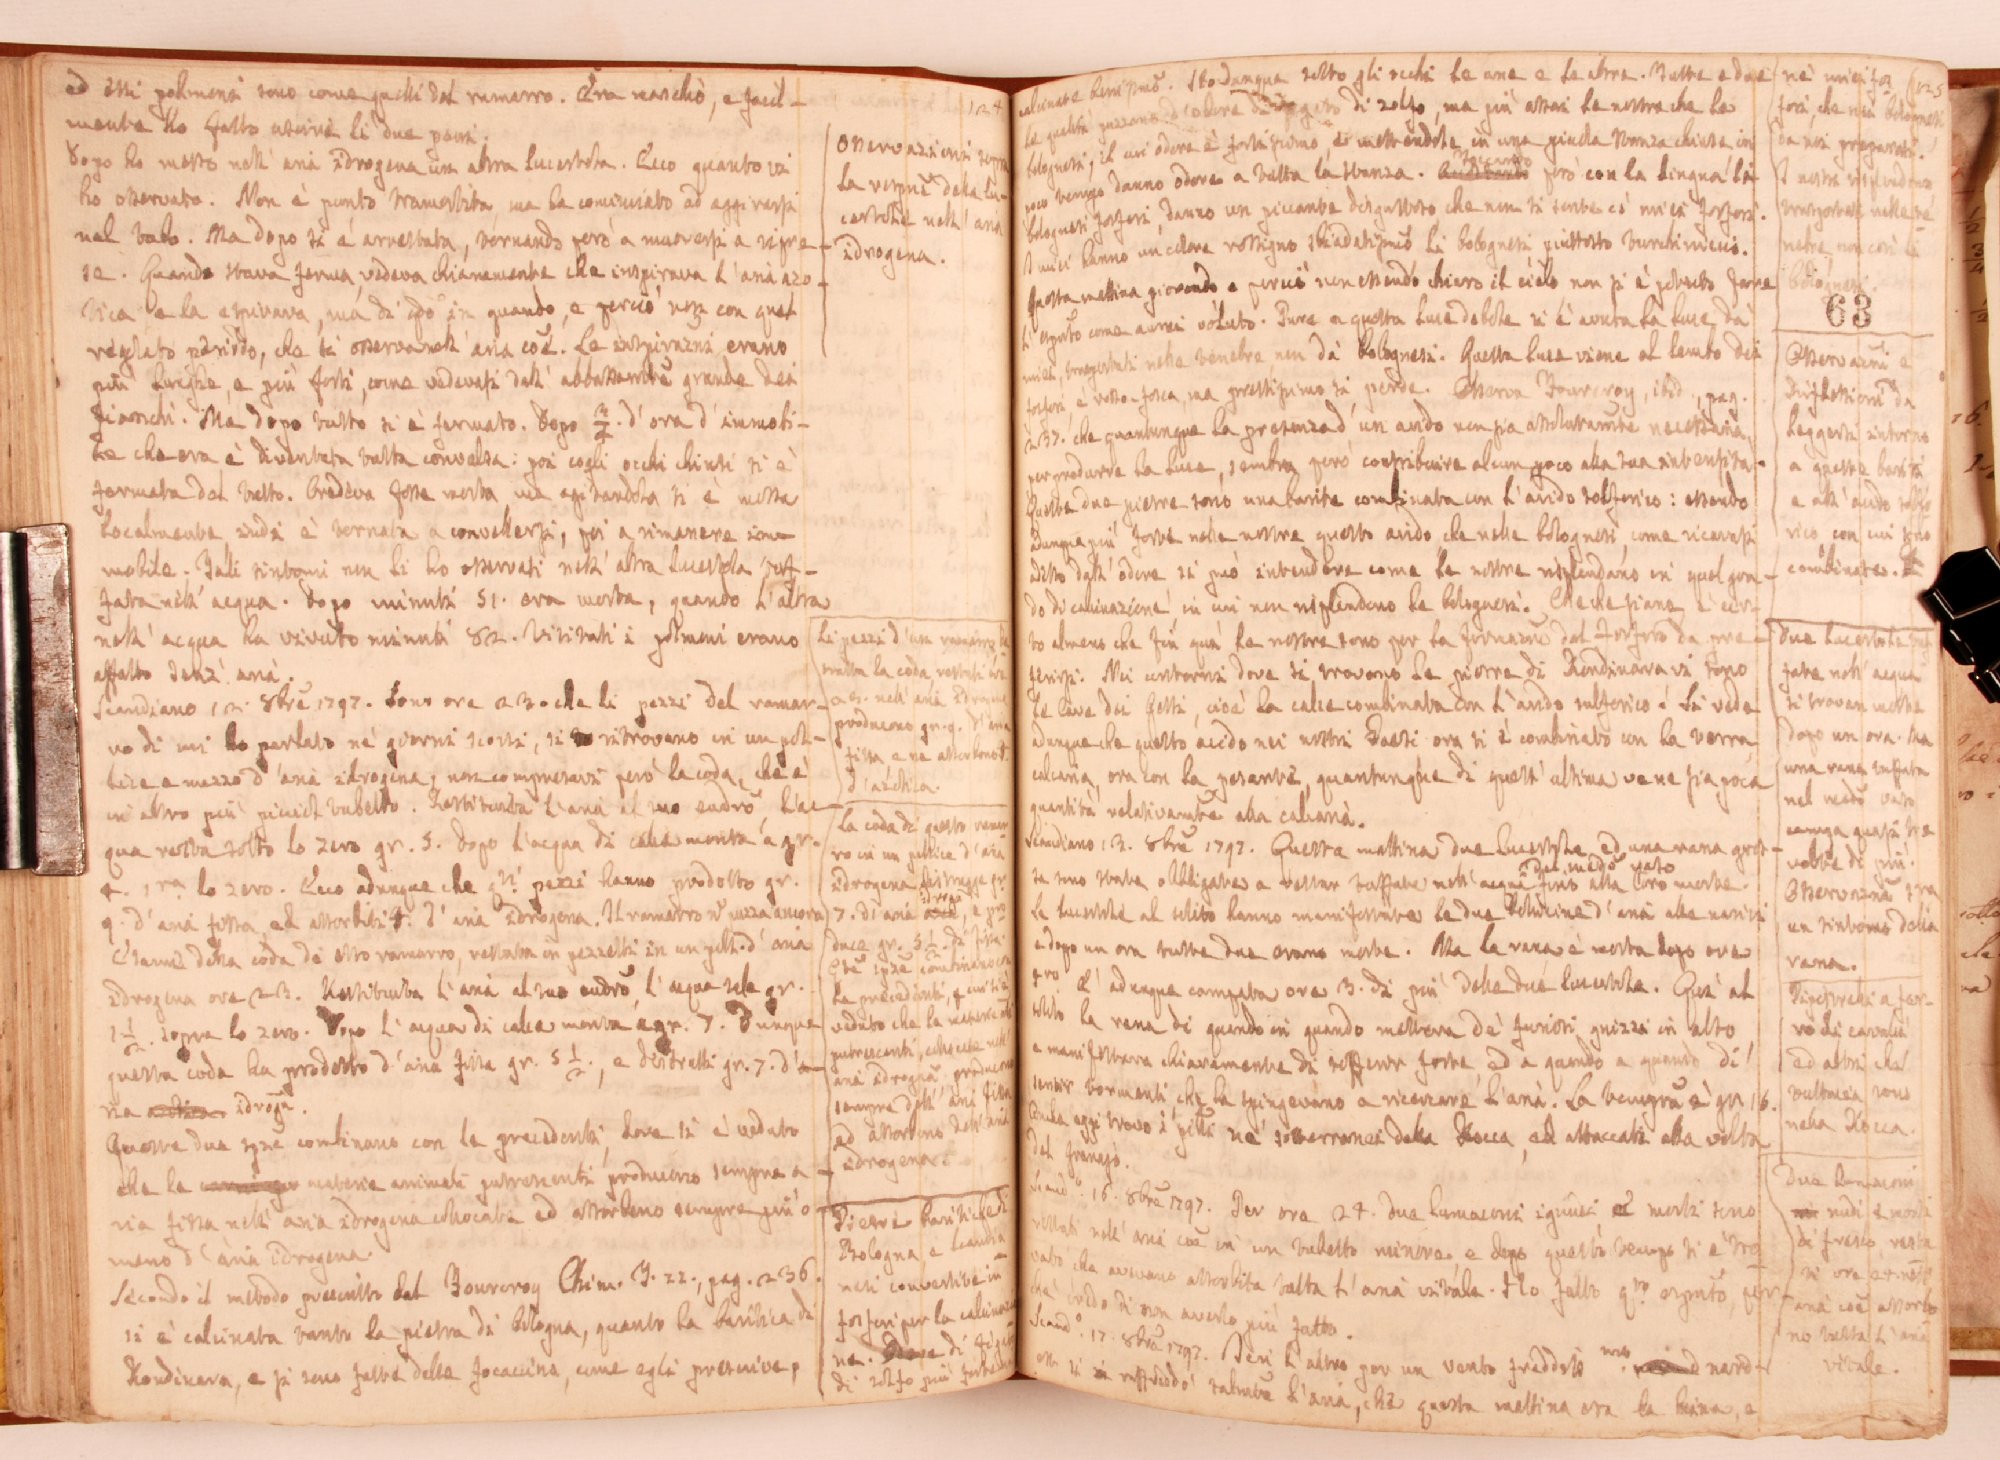 124
ed essi polmoni sono come quelli del ramarro. Era maschio, e facil-
mente ho fatto uscire li due peni.
Dopo ho messo nell' aria idrogena un altra lucertola. Ecco quanto vi
ho osservato. Non è punto tramortita, ma ha cominciato ad aggirarsi
nel vaso. Ma dopo si è arrestata, tornando però a muoversi a ripre-
se. Quando stava ferma vedeva chiaramente che inspirava l' aria azo-
tica e la espirava, ma di qdo in quando, e perciò non con quel
regolato periodo, che si osserva nell' aria coe. Le inspirazni erano
più lunghe, e più forti, come vedevasi dall' abbassamte grande dei
fianchi. Ma dopo tutto si è fermato. Dopo 3/4. d' ora d' immobi-
le che era è diventata tutta convulsa: poi cogli occhi chiusi si è
fermata del tutto. Credeva fosse morta ma agitandola si è mossa
localmente indi è tornata a convellersi, poi a rimanere im-
mobile. Tali sintomi non li ho osservati nell' altra lucertola tuf-
fata nell' acqua. Dopo minuti 51. era morta, quando l' altra
nell' acqua ha vivuto minuti 82. Visitati i polmoni erano
affatto senz' aria.
Scandiano 12. 8bre 1797. Sono ore 23. che li pezzi del ramar-
ro di cui ho parlato ne' giorni scorsi, si ritrovano in un pol-
lice e mezzo d' aria idrogena, non compresavi però la coda, che è
in altro più picciol tubetto. Restituita l' aria al suo
qua resta sotto lo zero gr. 5. Dopo l' acqua di calce monta a gr.
4. lo zero. Ecco adunque che qti pezzi hanno prodotto gr.
9. d' aria fissa, ed assorbiti d' aria idrogena. Il ramarro nn puzza ancora
della coda de esso ramarro, restata in pezzetti in un poll. d' aria
idrogena ore 23. Restituita l' aria al suo l' acqua sale gr.
1 1/2. sopra lo zero. Dopo l' acqua di calce monta a gr. 7. Dunque
questa coda ha prodotto d' aria fissa gr. 5 1/2., e distrutti gr. 7. d' a-
ria idroga.
Queste due spze combinano con le precedenti, dove si è veduto
che le materie animali putrescenti producono sempre a-
ria fissa nell' aria idrogena collocate ed assorbono sempre più o
meno d' aria idrogena.
Secondo il metodo prescritto dal Fourcroy Chim. T. 22., pag. 236.
si è calcinata tanto la pietra di Bologna, quanto la baritica di
Rondinara, e si sono fatte delle focaccine, come egli prescrive,
Osservazioni sopra
la respne delle lu-
certole nell' aria
idrogena.
Li pezzi d' un ramarro
la coda, restati ore
23. nell' aria idrogena
producono gr. 9. d' aria
fissa e ne assorbono
d' azotica.
La coda di questo ramar
ro in un pollice d' aria
idrogena distrugge gr.
7. di aria idroga, e pro
duce gr. 5 1/2. di fissa.
Qte spze combinano con
le precedenti, e cui si è
veduto che le materie
putrescenti, collocate nell'
aria idrogena, producono
sempre dell' aria fissa
ed assorbono dell' aria
idrogena.
Pietre baritiche di
Bologna e Scandia-
nesi convertite in
fosfori per la calcinazio
ne. di fegato
di solfo più
125
calcinate benissimo. Sto dunque sotto gli occhi le une e le altre. Tutte e due
le qualità puzzano d' odore di fegato di zolfo, ma più assai le nostre che le
bolognesi, il cui odore è fortissimo, e mettendole in una picciola stanza chiusa in
poco tempo danno odore a tutta la stanza. Toccando però con la lingua li
bolognesi fosfori, danno un piccante disgustoso che non si sente co' miei fosfori.
I miei hanno un colore rossigno sbiadatissimo li bolognesi piuttosto turchiniccio.
Questa mattina piovendo e perciò non essendo chiaro il cielo non si è potuto fare
l' esperto come aurei voluto. Pure a questa luce debole si è avuta la luce da
miei, trasportati nelle tenebre, non da' bolognesi. Questa luce viene al lembo dei
fosfori, è rosso-fosca, ma prestissimo si perde. Osserva Fourcroy, ibid., pag.
237. che quantunque la presenza d' un acido non sia assolutamte necessaria
per produrre la luce, sembra però contribuire alcun poco alla sua intensità.
Queste due pietre sono una barite combinata con l' acido solforico: essendo
dunque più forte nelle nostre questo acido, che nelle bolognesi, come ricavasi
dall' odore si può intendere come le nostre risplendano in quel gra-
do di calcinazione in cui non risplendono le bolognesi. Checche siane, è cer-
to almeno che fin qua le nostre sono per la formazne del fosforo da pre-
ferirsi. Nei contorni dove si trovano le pietre di Rondinara vi sono
le cave dei gessi, cioè la calce combinata con l' acido solforico. Si vede
adunque che questo acido nei nostri Paesi ora si è combinato con la terra
calcaria, ora con la pesante, quantunque di quest' ultima ve ne sia poca
quantità relativamte alla calcaria.
Scandiano 13. 8bre 1797. Questa mattina due lucertole, ed una rana gros-
sa sono state obbligate a restar tuffate nell' acqua del medo vaso fino alla loro morte.
Le lucertole al solito hanno manifestate le due d' aria alle narici
e dopo un ora tutte due erano morte. Ma la rana è morta dopo ore
4ro. E' adunque campata ore 3. di più delle due lucertole. Quì al
solito la rana di quando in quando metteva de' furiosi guizzi in alto
e manifestava chiaramente di soffrir forte, ed a quando a quando di
sentir tormenti, che la spingevano a ricercare l' aria. La tempra è gr. 16.
Anche oggi trovo i pilli ne' sotterranei della Rocca, ed attaccati alla volta
del
Scando. 16. 8bre 1797. Per ore 24. due lumaconi ignudi morti sono
restati nell' aria coe in un tubetto minore e dopo questo tempo si è tro-
vato che avevano assorbita tutta l' aria vitale. Ho fatto qto esperto, per-
che credo di non averlo più fatto.
Scando. 17. 8bre 1797. Ieri l' altro per un vento freddoso nard-
est si è raffreddò talmte l' aria, che questa mattina era la brina, e
ne' miei fos
fori, che nei bolognesi
da noi preparati.
I nostri risplendono
trasportati nelle te
nebre, non così li
bolognesi.
63
Osservazni e
riflessioni da
leggersi intorno
a queste bariti
e all' acido solfo
rico con cui sono
combinate.
Due lucertole tuf
fate nell' acqua
si trovan morte
dopo un ora. Ma
una rana tuffata
nel medo vaso
campa quasi tre
volte di più.
Osservazni sra
un sintomo della
rana.
Pipistrelli a fer-
ro di cavallo
ed altri che
tuttavia sono
nella Rocca.
Due lumaconi
nudi e morti
di fresco, resta
ti ore 24 nell'
aria coe assorbo
no tutta l' aria
vitale.